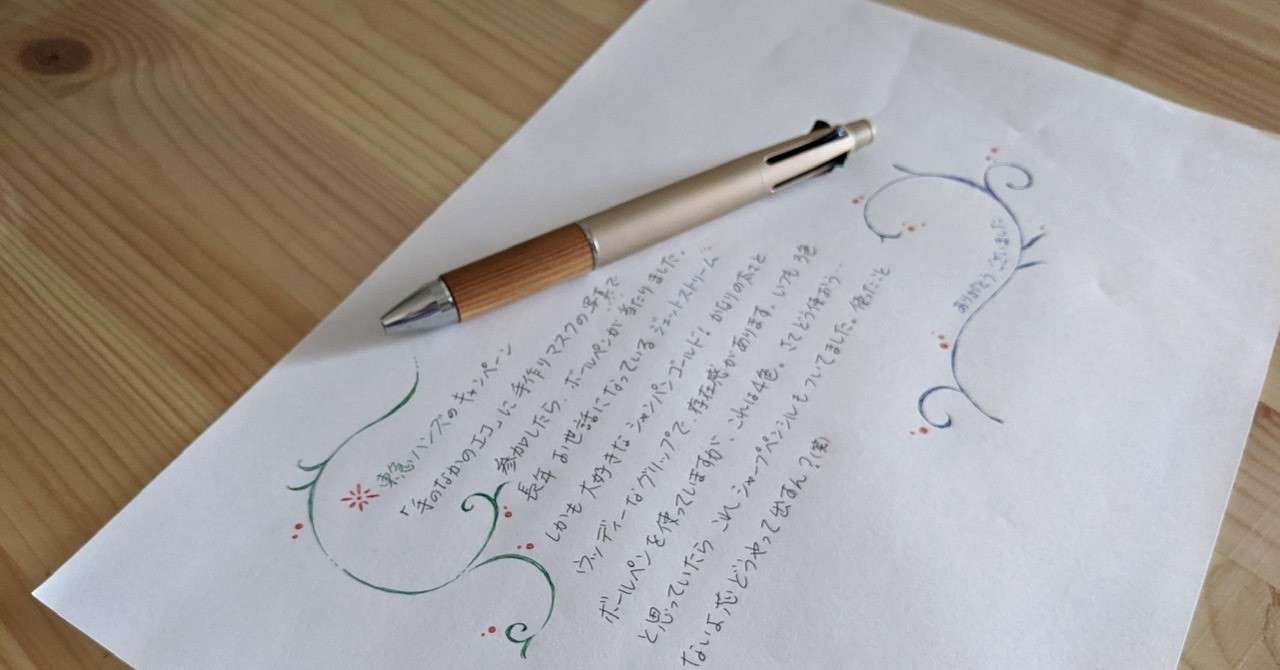 東急ハンズのキャンペーン
「手のなかのエコ」に手作りマスクの写真で
参加したら、ボールペンがあたりました。
長年お世話になっているジェットストリーム
しかも大好きなシャンパンゴールド！かなりの太さと
ウッディーなグリップで、存在感があります。いつも3色
ボールペンを使っていますが、これは4色。さてどう使おう..
と思っていたらこれシャープペンシルもついてました。使ったこと
ないよ芯どうやって出すん？(笑)
ありがとうございました